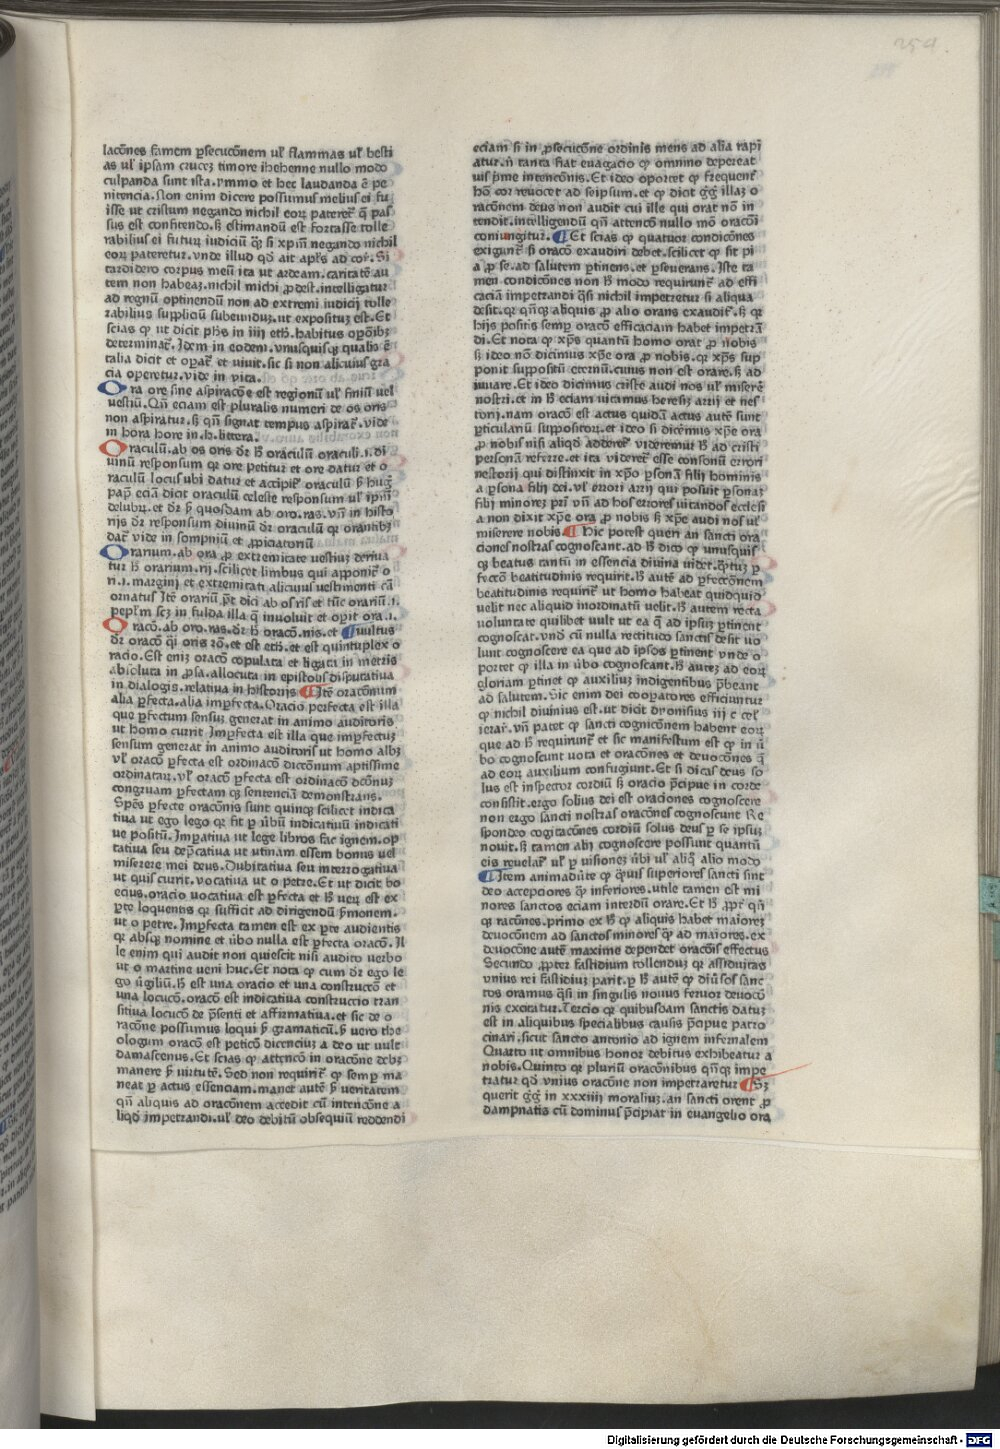 254
lacōnes famem ꝑsecucōnem ul' flammas ul' besti
as ul' ipsam crucez timore ihehenne nullo modo
culpanda sunt ista. ymmo et hec laudanda ē pe
nitencia. Non enim dicere possumus melius ei fu
isse ut cristum negando nichil eoꝝ pateret᷑ q̄ pas
sus est confitendo. ꝫ estimandū est fortasse tolle
rabilius ei futuꝝ iudiciū q̄ꝫ si xpm̄ negando nichil
eoꝝ pateretur. vnde illud qd̓ ait apl̓s ad coꝝ. Si
tardidero corpus meū ita ut ardeam. caritatē au
tem non habeaꝫ. nichil michi ꝓdest. intelligatur
ad regnū optinendū non ad extremi iudicij tolle
rabilius suppliciū subeunduꝫ. ut exposituꝫ est. Et
scias ꝙ ut dicit ph̓s in iiij eth̓. habitus oꝑōibꝫ
determinat᷑. Idem in eodem. vnusquisqꝫ qualis ē
talia dicit et oꝑat᷑ et viuit. sic si non alicuius gra
cia operetur. vide in vita.
Ora ore sine aspiracōe est regionū ul' finiū uel
vestiū. Qn̄ eciam est pluralis numeri de os oris
non aspiratur. ꝫ qn̄ signat tempus aspirat᷑. vide
in hora hore in .h. littera.
Oraculū. ab os oris dr̄ h̓ oraculū oraculi .i. di
uinū responsum qꝛ ore petitur et ore datur et o
raculū locus ubi datur et accipit᷑ oraculū ẜm hug̓
pap̄ eciā dicit oraculū celeste responsum ul' ip̄m
delubꝝ. et dr̄ ẜm quosdam ab oro. ras. vn̄ in histo
rijs dr̄ responsum diuinū dr̄ oraculū qꝛ orantibꝫ
dat᷑ vide in sompniū et ꝓpiciatoriū
Orarium. ab ora ꝓ extremitate uestiuꝫ deriua
tur h̓ orarium. rij. scilicet limbus qui apponit᷑ o
ri .i. margini et extremitati alicuius vestimenti cā
ornatus Itē orariū pt̄ dici ab os oris et tūc orariū .i.
pepl̄m scꝫ in fulda illa q̄ inuoluit et oꝑit ora .i.
Oracō. ab oro. ras. dr̄ h̓ oracō. nis. et vultus
dr̄ oracō q̄si oris rō. et est eth̓. et est quintuplex o
racio. Est eniꝫ oracō copulata et ligata in metris
absoluta in ꝓsa. allocuta in epistolis disputatiua
in dialogis. relatiua in historijs Itē oracōnum
alia ꝑfecta. alia imꝑfecta. Oracio perfecta est illa
que ꝑfectum sensuꝫ generat in animo auditoris
ut homo currit Imꝑfecta est illa que imꝑfectuꝫ
sensum generat in animo auditoris ut homo albꝫ
vl' oracō ꝑfecta est ordinacō diccōnum aptissime
ordinataꝝ. vl' oracō ꝑfecta est ordinacō dcōnuꝫ
congruam ꝑfectam qꝫ sentenciā demonstrans.
Spēs ꝑfecte oracōnis sunt quinqꝫ scilicet indica
tiua ut ego lego qꝛ fit ꝑ ūbū indicatiuū indicati
ue positū. Imꝑatiua ut lege libros fac ignem. op
tatiua seu dep̄catiua ut utinam essem bonus uel
miserere mei deus. Dubitatiua seu interrogatiua
ut quis currit. vocatiua ut o petre. Et ut dicit bo
ecius. oracio vocatiua est ꝑfecta et h̓ veꝝ est ex
ꝑte loquentis qꝛ sufficit ad dirigendū s̄monem.
ut o petre. Imꝑfecta tamen est ex ꝑte audientis
qꝛ absqꝫ nomine et ūbo nulla est ꝑfecta oracō. Il
le enim qui audit non quiescit nisi audito uerbo
ut o martine ueni huc. Et nota ꝙ cum dr̄ ego le
go ūgiliū. h̓ est una oracio et una construccō et
una locucō. oracō est indicatiua construccio tran
sitiua locucō de p̄senti et affirmatiua. et sic de o
racōne possumus loqui ẜm gramaticū. ẜm uero the
ologum oracō est peticō dicencius a deo ut uult
damascenus. Et scias ꝙ attencō in oracōne debꝫ
manere ẜm uirtutē. Sed non requirit᷑ ꝙ semꝑ ma
neat ꝑ actus essenciam. manet autē ẜm ueritatem
qn̄ aliquis ad oracōnem accedit cū intencōne a
liqd̓ impetrandi. ul' deo debitū obsequiū reddendi
eciam si in ꝓsecucōne ordinis mens ad alia rapi
atur. n̄ tanta fiat euagacio ꝙ omnino depereat
uis p̄me intencōnis. Et ideo oportet ꝙ frequent᷑
hō cor reuocet ad seipsum. et ꝙ dicit g̓g̓ illaꝫ o
racōnem deus non audit cui ille qui orat nō in
tendit. intelligendū qn̄ attencō nullo mō oracōi
coniungitur. Et scias ꝙ quatuor condicōnes
exigunt᷑ si oracō exaudiri debet. scilicet ꝙ sit pi
a ꝓ se. ad salutem ꝑtinens. et ꝑseuerans. Iste ta
men condicōnes non h̓ modo requirunt᷑ ad effi
caciā impetrandi q̄si nichil impetretur si aliqua
desit. qꝛ qn̄qꝫ aliquis ꝓ alio orans exaudit᷑. ꝫ qꝛ
hijs positis semꝑ oracō efficaciam habet impetrā
di. Et nota ꝙ xp̄s quantū homo orat ꝓ nobis
ꝫ ideo nō dicimus xp̄e ora ꝓ nobis. qꝛ xp̄s sup
ponit suppositū eternū. cuius non est orare. ꝫ ad
iuuare. Et ideo dicimus criste audi nos ul' miserē
nostri. et in h̓ eciam uitamus heresiꝫ arrij et nes
torij. nam oracō est actus quidā actus autē sunt
ꝑticulariū suppositoꝝ. et ideo si dicēmus xp̄e ora
ꝓ nobis nisi aliqd̓ adderet᷑ videremur h̓ ad cristi
personā referre. et ita videret᷑ esse consonū errori
nestorij qui distinxit in xp̄o ꝑsonā filij hominis
a ꝑsona filij dei. vl' errori arrij qui posuit ꝑsonaꝫ
filij minoreꝫ pr̄i vn̄ ad hos errores uitandos ecclesi
a non dixit xp̄e ora ꝓ nobis ꝫ xp̄e audi nos ul'
miserere nobis. Hic potest queri an sancti ora
ciones nostras cognoscant. ad h̓ dico ꝙ unusquis
qꝫ beatus tantū in essencia diuina uidet. q̄ntuꝫ ꝑ
feccō beatitudinis requirit. h̓ autē ad ꝑfeccōnem
beatitudinis requirit᷑ ut homo habeat quidquid
uelit nec aliquid inordinatū uelit. h̓ autem recta
uoluntate quilibet uult ut ea q̄ ad ipsuꝫ ꝑtinent
cognoscat. vnd̓ cū nulla rectitudo sanctis desit uo
lunt cognoscere ea que ad ipsos ꝑtinent vnde o
portet ꝙ illa in ūbo cognoscant. h̓ auteꝫ ad eoꝝ
gloriam ꝑtinet ꝙ auxiliuꝫ indigentibus p̄beant
ad salutem. Sic enim dei cooꝑatores efficiuntur
ꝙ nichil diuinius est. ut dicit dronisius iij c cel'
ierar᷑. vn̄ patet ꝙ sancti cognicōnem habent eoꝝ
que ad h̓ requirunt᷑ et sic manifestum est ꝙ in ū
bo cognoscunt uota et oracōnes et deuocōnes q̄
ad eoꝝ auxilium confugiunt. Et si dicas deus so
lus est inspector cordiū ꝫ oracō p̄cipue in corde
consistit. ergo solius dei est oraciones cognoscere
non ergo sancti nostras oracōnes cognoscunt Re
spondeo cogitacōnes cordiū solus deus ꝑ se ipsuꝫ
nouit. ꝫ tamen alij cognoscere possunt quantū
eis reuelat᷑ ul' ꝑ uisioneꝫ ūbi ul' aliq̄ alio modo
Item animaduēte ꝙ q̄uis superiores sancti sint
deo accepciores q̄ꝫ inferiores. utile tamen est mi
nores sanctos eciam interdū orare. Et h̓ ꝓpt᷑ qn̄
qꝫ racōnes. primo ex h̓ ꝙ aliquis habet maioreꝫ
deuocōnem ad sanctos minores q̄ꝫ ad maiores. ex
deuocōne autē maxime dependet oracōis effectus
Secundo ꝓpter fastidium tollenduꝫ qꝛ assiduitas
vnius rei fastidiuꝫ parit. ꝑ h̓ autē ꝙ diūsos sanc
tos oramus q̄si in singulis nouus feruor deuocō
nis excitatur. Tercio qꝛ quibusdam sanctis datuꝫ
est in aliquibus specialibus causis p̄cipue patro
cinari. sicut sancto antonio ad ignem infernalem
Quarto ut omnibus honor debitus exhibeatur a
nobis. Quinto qꝛ pluriū oracōnibus qn̄qꝫ impe
tratur qd̓ vnius oracōne non impetraretur Sꝫ
querit g̓g̓ in xxxiiij moraliuꝫ. an sancti orent ꝓ
dampnatis cū dominus p̄cipiat in euangelio ora
Digitalisierung gefördert durch die Deutsche Forschungsgemeinschaft - DFG